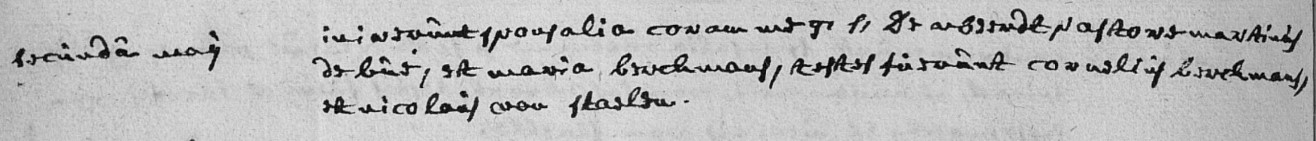 secunda maij
inierunt sponsalia coram me g: f, De weerdt pastore martinus
de bue, et maria berckmans, testes fuerunt cornelius berckmans,
et nicolais van staelen.